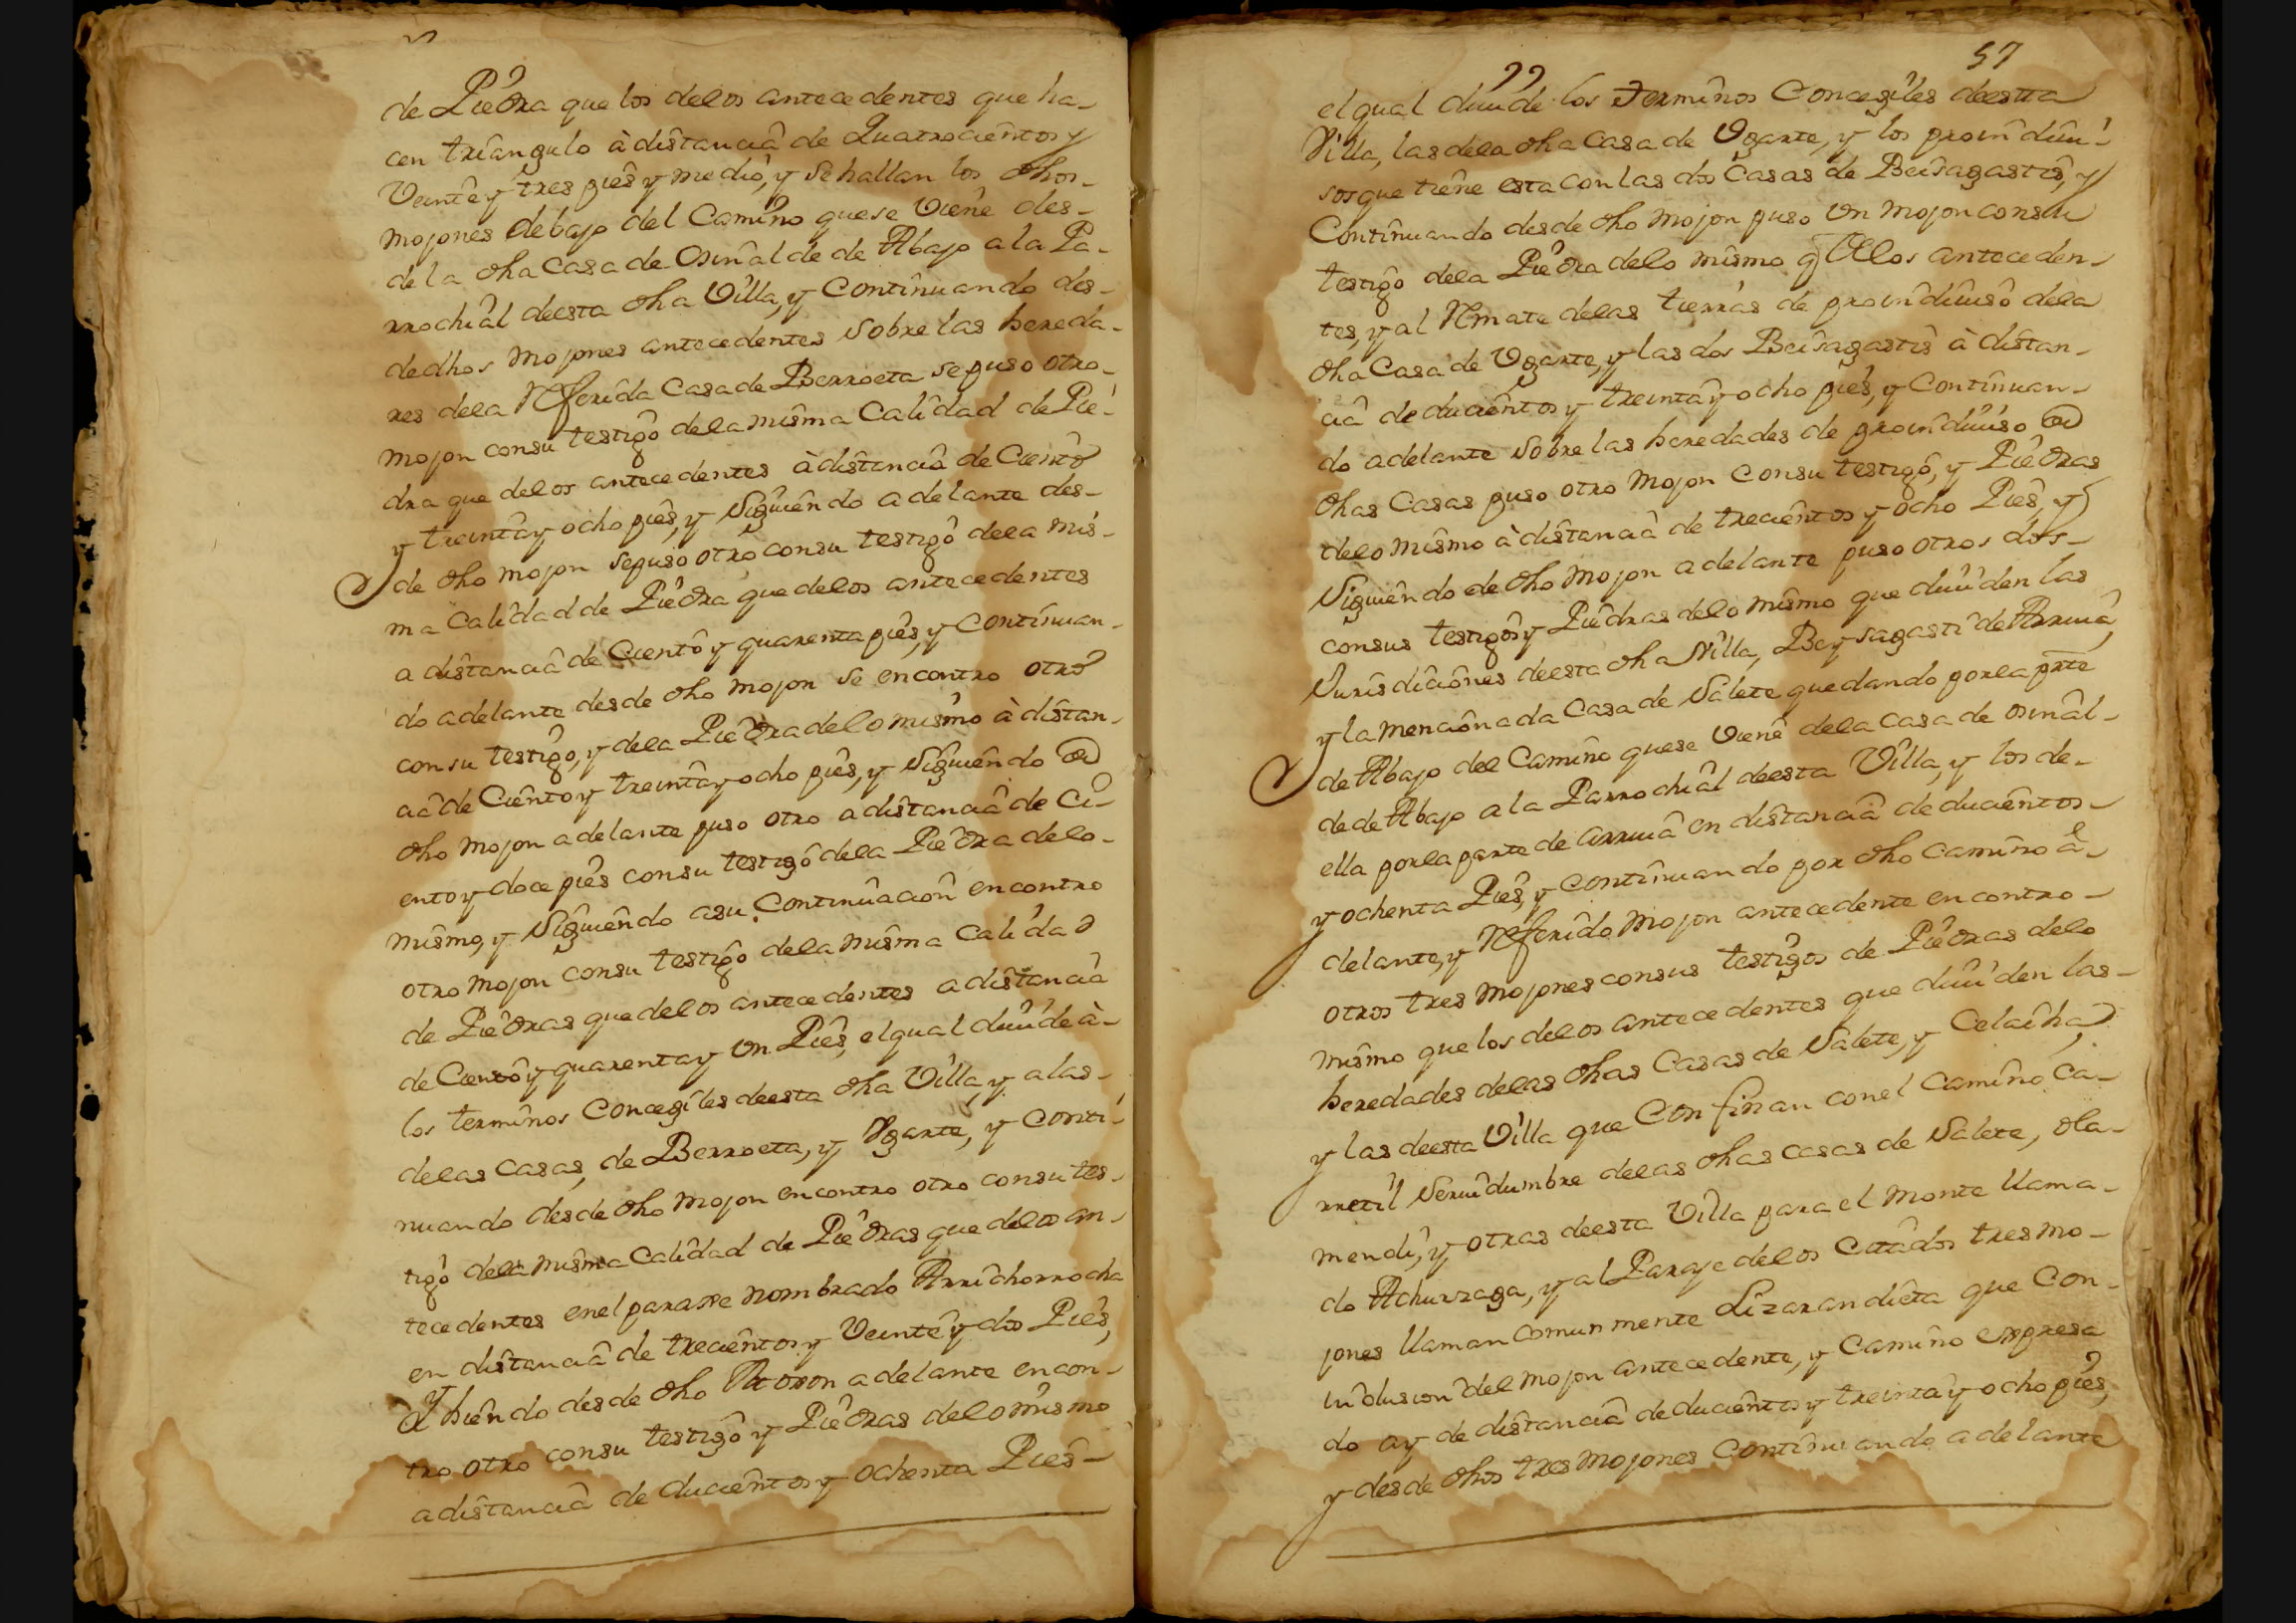 de Piedra que los delos antecedentes que ha-
cen triangulo à distancia de Quatrocientos y
Veinte y tres pies y medio, y se hallan los dhos-
mojones debajo del Camino quese viene des-
de la dha Casa de Osinalde de Abajo a la Pa-
rrochial deesta dha Villa, y Continuando des-
dedhos Mojones antecedentes sobre las hereda-
res dela Referida Casa de Berroeta sepuso otro-
mojon consu testigo dela misma Calidad de Pie-
dra que delos antecedentes à distancia de Ciento
y treinta y ocho pies, y Siguiendo adelante des-
de dho mojon sepuso otro consu testigo dela mis-
ma Calidad de Piedra que delos antecedentes
a distancia de Ciento y quarenta pies, y Continuan-
do adelante desde dho mojon se encontro otro
consu testigo, y dela Piedra delo mismo à distan-
cia de Ciento y treinta y ocho pies, y Siguiendo de
dho Mojon adelante puso otro a distancia de Ci-
ento y doce pies consu testigo dela Piedra delo-
mismo, y Siguiendo asu Continuacion encontro
otro Mojon consu testigo dela misma Calidad
de Piedras que delos antecedentes a distancia
de Ciento y quarenta y Un Pies, elqual diuide à-
los terminos Concegiles deesta dha Villa, y alas-
delas Casas, de Berroeta, y Vgarte, y Conti-
nuando desde dho Mojon encontro otro consu tes-
tigo dela misma Calidad de Piedras que delos an-
tecedentes enel paraxe nombrado Arrichorrocha
en distancia de trecientos y Veinte y dos Pies,
Y hiendo desde dho Moxon adelante encon-
tro otro consu testigo y Piedras delo mismo
a distancia de ducientos y ochenta Pies-
57
elqual diuide los Terminos Concegiles deesta
Villa, las dela dha Casa de Vgarte, y los proindiui-
sos que tiene esta con las dos Casas de Beisagastis, y
Continuando desde dho Mojon puso Un Mojon consu
testigo dela Piedra delo mismo q̃ Ellos anteceden-
tes, y al Rmate delas tierras de proindiuiso dela
dha Casa de Vgarte, y las dos Beisagastis à distan-
cia de ducientos y treinta y ocho pies, y Continuan-
do adelante Sobre las heredades de proindiuiso de
dhas Casas puso otro Mojon Consu testigo, y Piedras
delo mismo à distancia de trecientos y ocho Pies, y
Siguiendo de dho Mojon adelante puso otros dos-
consus testigos y Piedras delo mismo que diuiden las
Jurisdiciones deesta dha Villa, Beysagasti de Arriua,
y la mencionada Casa de Salete quedando porla prte
de Abajo del Camino quese viene dela Casa de osinal-
de de Abajo a la Parrochial deesta Villa, y los de-
ella porla parte de arriua en distancia de ducientos-
y ochenta Pies, y Continuando por dho Camino a el-
delante, y Referido Mojon antecedente encontro-
otros tres Mojones consus testigos de Piedras delo
mismo que los delos antecedentes que diuiden las-
heredades delas dhas Casas de Salete, y Celaiha,
y las deesta Villa que Confinan conel Camino Ca-
rretil Seruidumbre delas dhas casas de Salete, ola-
mendi, y otras deesta Villa para el Monte llama-
do Achurzaga, y al Paraje delos Citados tres mo-
jones llaman comunmente Lizarandieta que Con-
inclusion del Mojon antecedente, y Camino expresa
do ay de distancia de ducientos y treinta y ocho pies,
y desde dhos tres Mojones Continuando adelante